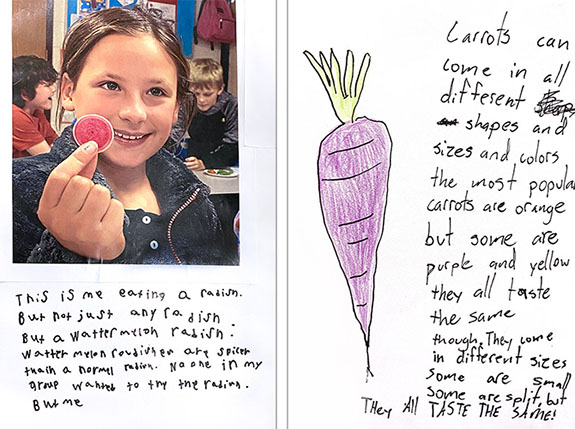 This is me eating a radish.
But not just any radish
But a wattermelon radish:
wattermelon roudishen are spicer
thain a normal radish. No one in my
group wanted to try the radish.
But me
Carrots can
come in all
different
shapes and
sizes and colors
the most popular
carrots are orange
but some are
purple and yellow
they all taste
the same
though, They come
in different sizes
some are small
Some are split, but
THey All TASTE THE SAME!